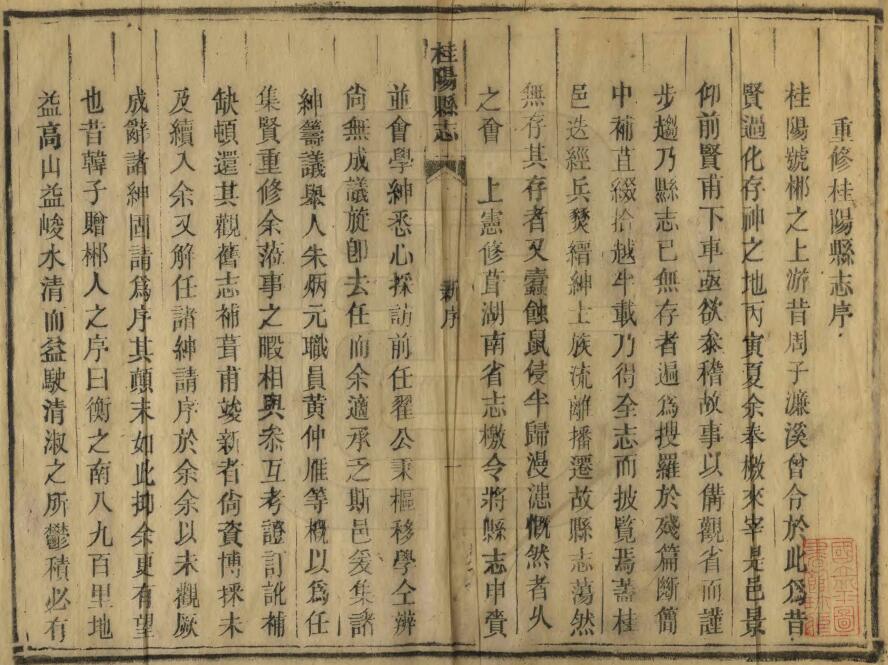 重修桂陽縣志序
桂陽號郴之上游昔周子濂溪曾令於此爲昔
賢過化存神之地丙寅夏余奉檄來宰是邑景
仰前賢甫下車亟欲叅稽故事以備觀省而謹
步趨乃縣志已無存者遍爲搜羅於殘篇斷簡
中補苴綴拾越半載乃得全志而披覧焉蓋桂
邑迭經兵燹縉紳士族流離播遷故縣志蕩然
無存其存者又蠧蝕鼠侵半歸漫漶慨然者久
之會　上憲修葺湖南省志檄令將縣志申賫
桂陽縣志
新序
一
並會學紳悉心採訪前任翟公秉樞移學仝辦
尙無成議旋卽去任而余適承乏斯邑爰集諸
紳籌議舉人朱炳元職員黃仲雁等概以爲任
集賢重修余蒞事之暇相與叅互考證訂訛補
缺頓還其觀舊志補葺甫竣新者尙資博採未
及續入余又解任諸紳請序於余余以未觀厥
成辭諸紳固請爲序其顛末如此抑余更有望
也昔韓子贈郴人之序曰衡之南八九百里地
益高山益峻水清而益駛清淑之所鬱積必有